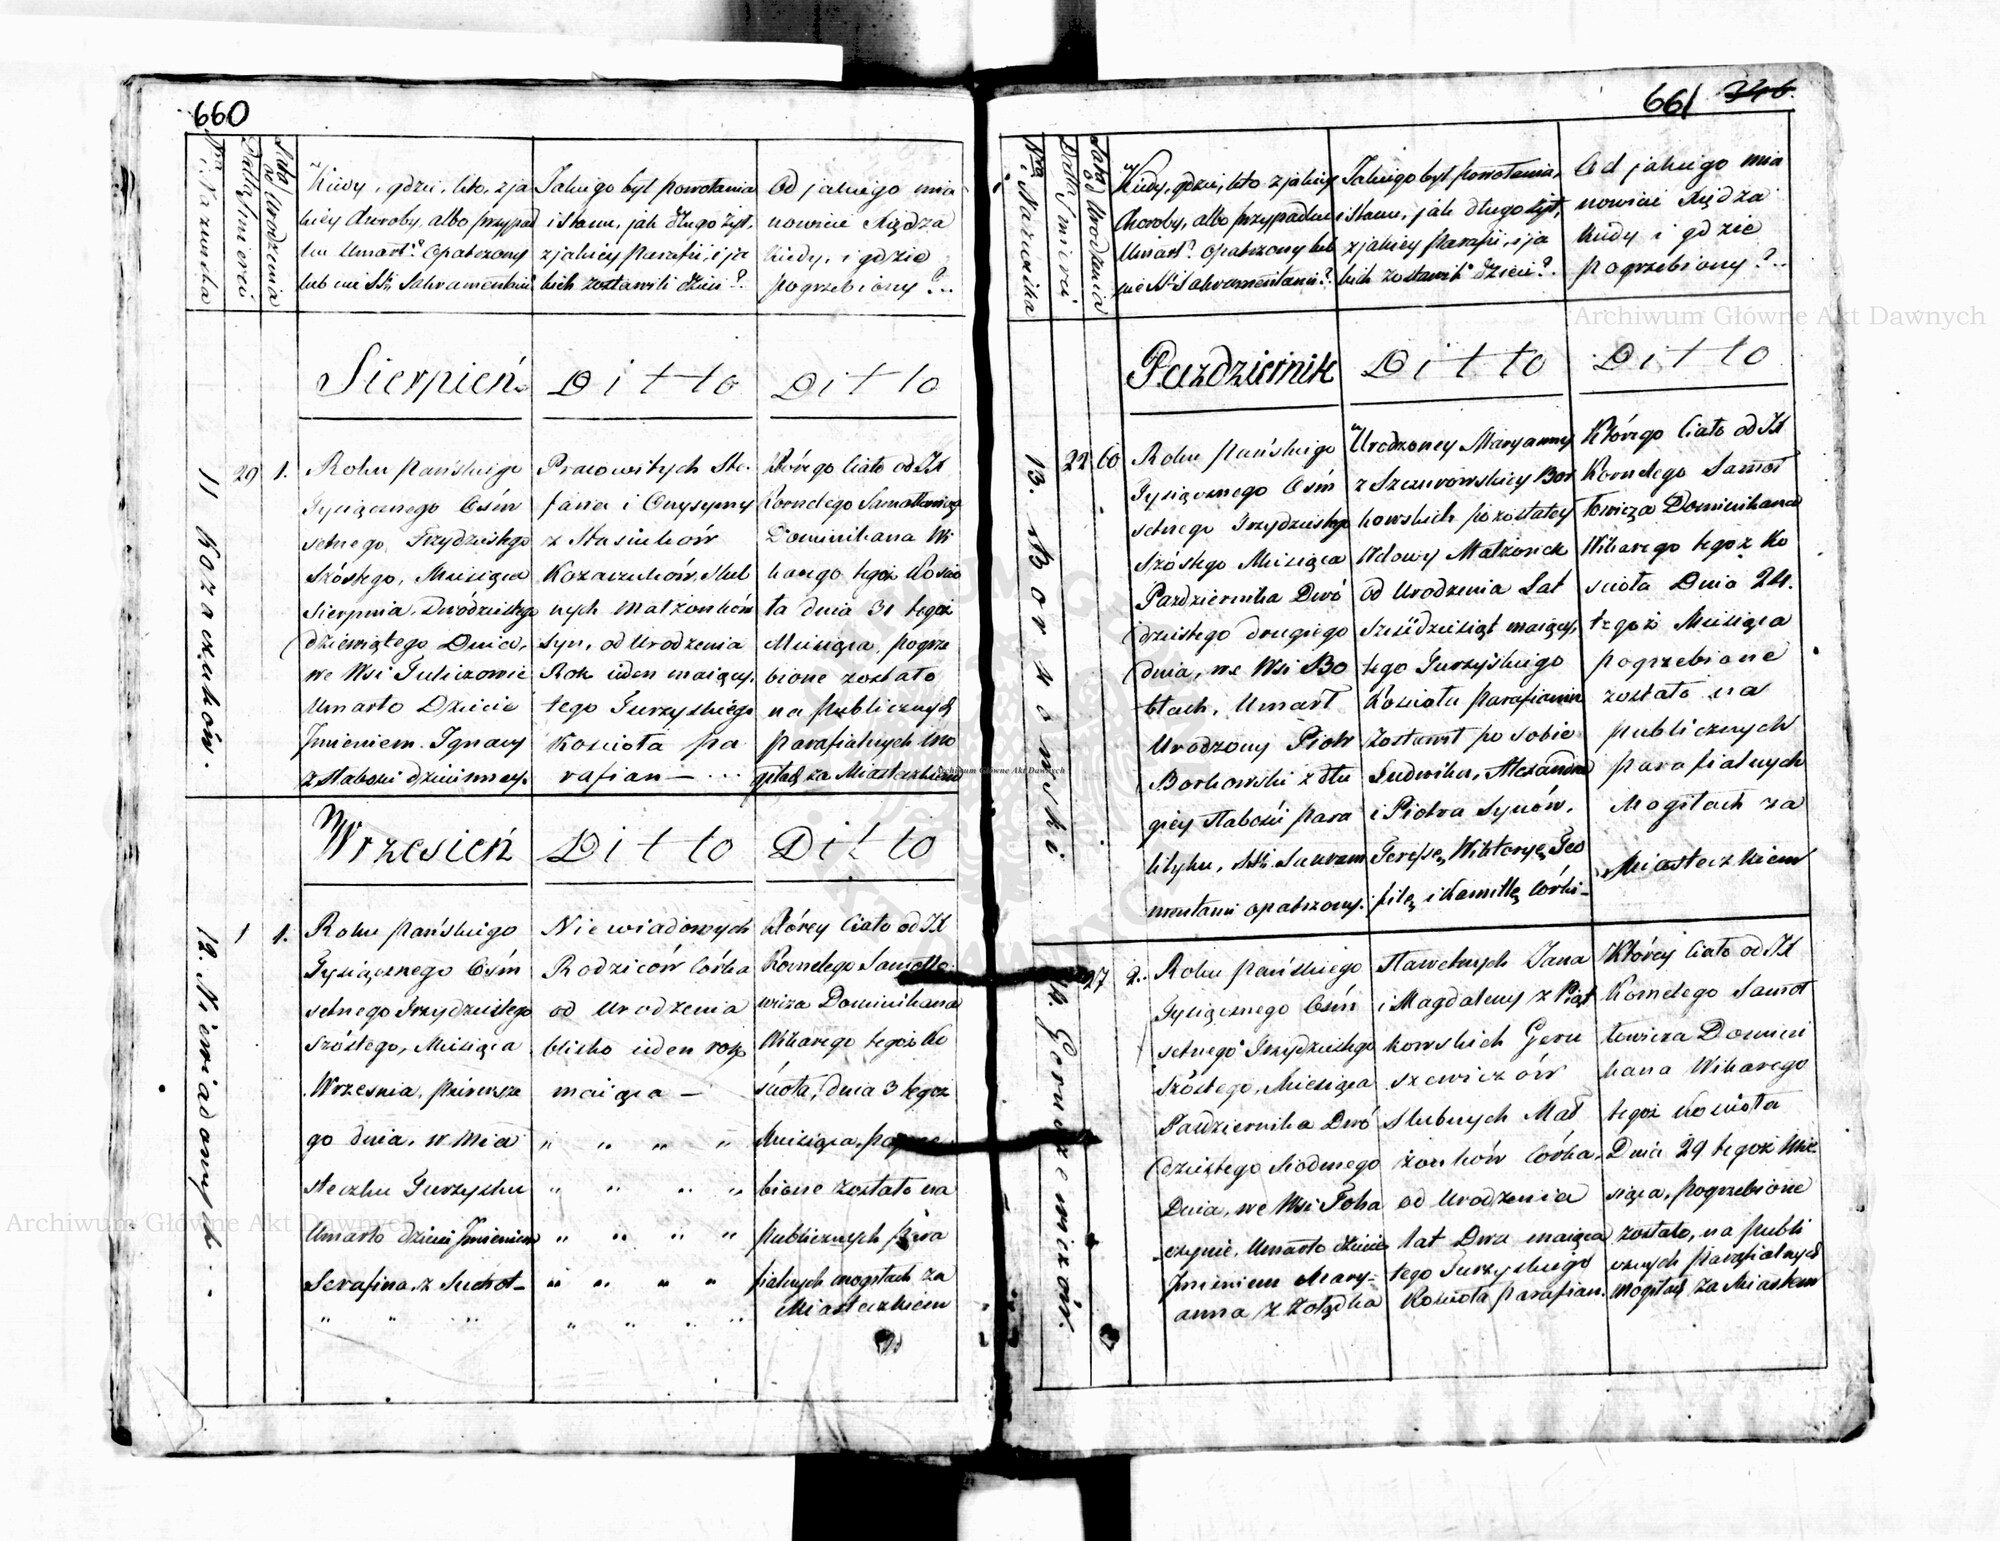 660
Nro i Nazwiska
Data Śmierci
Lata od Urodzenia
Kiedy, gdzie, kto, z ja
kiey Choroby, albo przypad
ku Umarł? Opatrzony
lub nie SS. Sakramentami?
Jakiego był Powołania
i Stanu, jak długo żył,
z jakiey Parafii, i ja
kich zostawił dzieci?
Od jakiego mia
nowicie Xiędza
kiedy, i gdzie
pogrzebiony?..
Sierpień
Ditto
Ditto
11 Kozaczuków.
29
1.
Roku Pańskiego
Tysiącznego Ośm
setnego Trzydziestego
Szóstego, Miesiąca
Sierpnia, Dwódziestego
dziewiątego Dnia,
we Wsi Tuliczowie
Umarło Dziecie
Jmieniem Ignacy
z słabości dziecinney.
Pracowitych Ste.
fana i Onysymy
z Stasiuków
Kozaczuków, Slub
nych Małżonków
Syn, od Urodzenia
Rok ieden maiący.
tego Turzyskiego
Kościoła pa
rafian — ...
Którego Ciało od JX
Kornelego Samotłowicza
Dominikana Wi
karego tegoż Kościo
ła dnia 31 tegoż
Miesiąca, pogrze
bione zostało
na Publicznych
Parafialnych Mo
giłach za Miasteczkiem
Wrzesień
Ditto
Ditto
12. Niewiadomych.
1
1.
Roku Pańskiego
Tysiącznego Ośm
setnego Trzydziestego
Szóstego, Miesiąca
Września, pierwsze
go dnia, w Mia
steczku Turzysku
Umarło dziecie Jmieniem
Serafina z Suchot—
" " "
Niewiadomych
Rodziców Córka
od Urodzenia
blisko ieden rok
maiąca —
" " " "
" " " "
" " " "
" " " "
" " " "
Którey Ciało od JX
Kornelego Samotło
wicza Dominikana
Wikarego tegoż Ko
ścioła, dnia 3 tegoż
Miesiąca, pogrze
bione zostało na
Publicznych Para
fialnych mogiłach za
Miasteczkiem
661 346.
Nro i Nazwiska
Data Śmierci
Lata od Urodzenia
Kiedy, gdzie, kto z jakiey
Choroby, albo przypadku
Umarł? Opatrzony lub
nie SS. Sakramentami?
Jakiego był Powołania,
i Stanu, jak długo żył,
z jakiey Parafii, i ja
kich zostawił dzieci?
Od jakiego mia
nowicie Xiędza
kiedy i gdzie
pogrzebiony?..
Pazdziernik
Ditto
Ditto
13. Borkowski
22
60
Roku Pańskiego
Tysiącznego Ośm
setnego Trzydziestego
Szóstego Miesiąca
Pazdziernika Dwó
dziestego drugiego
dnia, we Wsi Bo
błach, Umarł
Urodzony Piotr
Borkowski z dłu
giey słabości Para
liżyku, SS. Sakram
mentami opatrzony.
Urodzoney Maryanny
z Szczurowskiey Bor
kowskich pozostałey
Wdowy Małżonek
od Urodzenia Lat
Sześćdziesiąt maiący,
tego Turzyskiego
Kościoła Parafianin
Zostawił po sobie
Ludwika, Alexandra
i Piotra Synów,
Teressę, Wiktoryę, Teo
filę i Kamillę Córki—
Którego Ciało od JX
Kornelego Samoł
towicza Dominikana
Wikarego tegoż Ko
ścioła Dnia 24.
tegoż Miesiąca
pogrzebione
zostało na
publicznych
Parafialnych
Mogiłach za
Miasteczkiem
14. Geruszewiczów.
27
2.
Roku Pańskiego
Tysiącznego Ośm
setnego Trzydziestego
Szóstego, Miesiąca
Pazdziernika Dwó
dziestego Siodmego
Dnia, we Wsi
Umarło dziecie
Jmieniem Mary-
anna z Zołądka
Sławetnych Jana
i Magdaleny z Piąt
kowskich Geru
szewiczów
Slubnych Mał
żonków Córka,
od Urodzenia
lat Dwa maiąca
tego Turzyskiego
Kościoła parafian.
Którey Ciało od JX
Kornelego Samoł
towicza Domini
kana Wikarego
tegoż Kościoła
Dnia 29 tegoż Mie
siąca, pogrzebione
zostało, na Publi
cznych Parafialnych
mogiłach za Miastem
Archiwum Główne Akt Dawnych
Archiwum Główne Akt Dawnych
Archiwum Główne Akt Dawnych